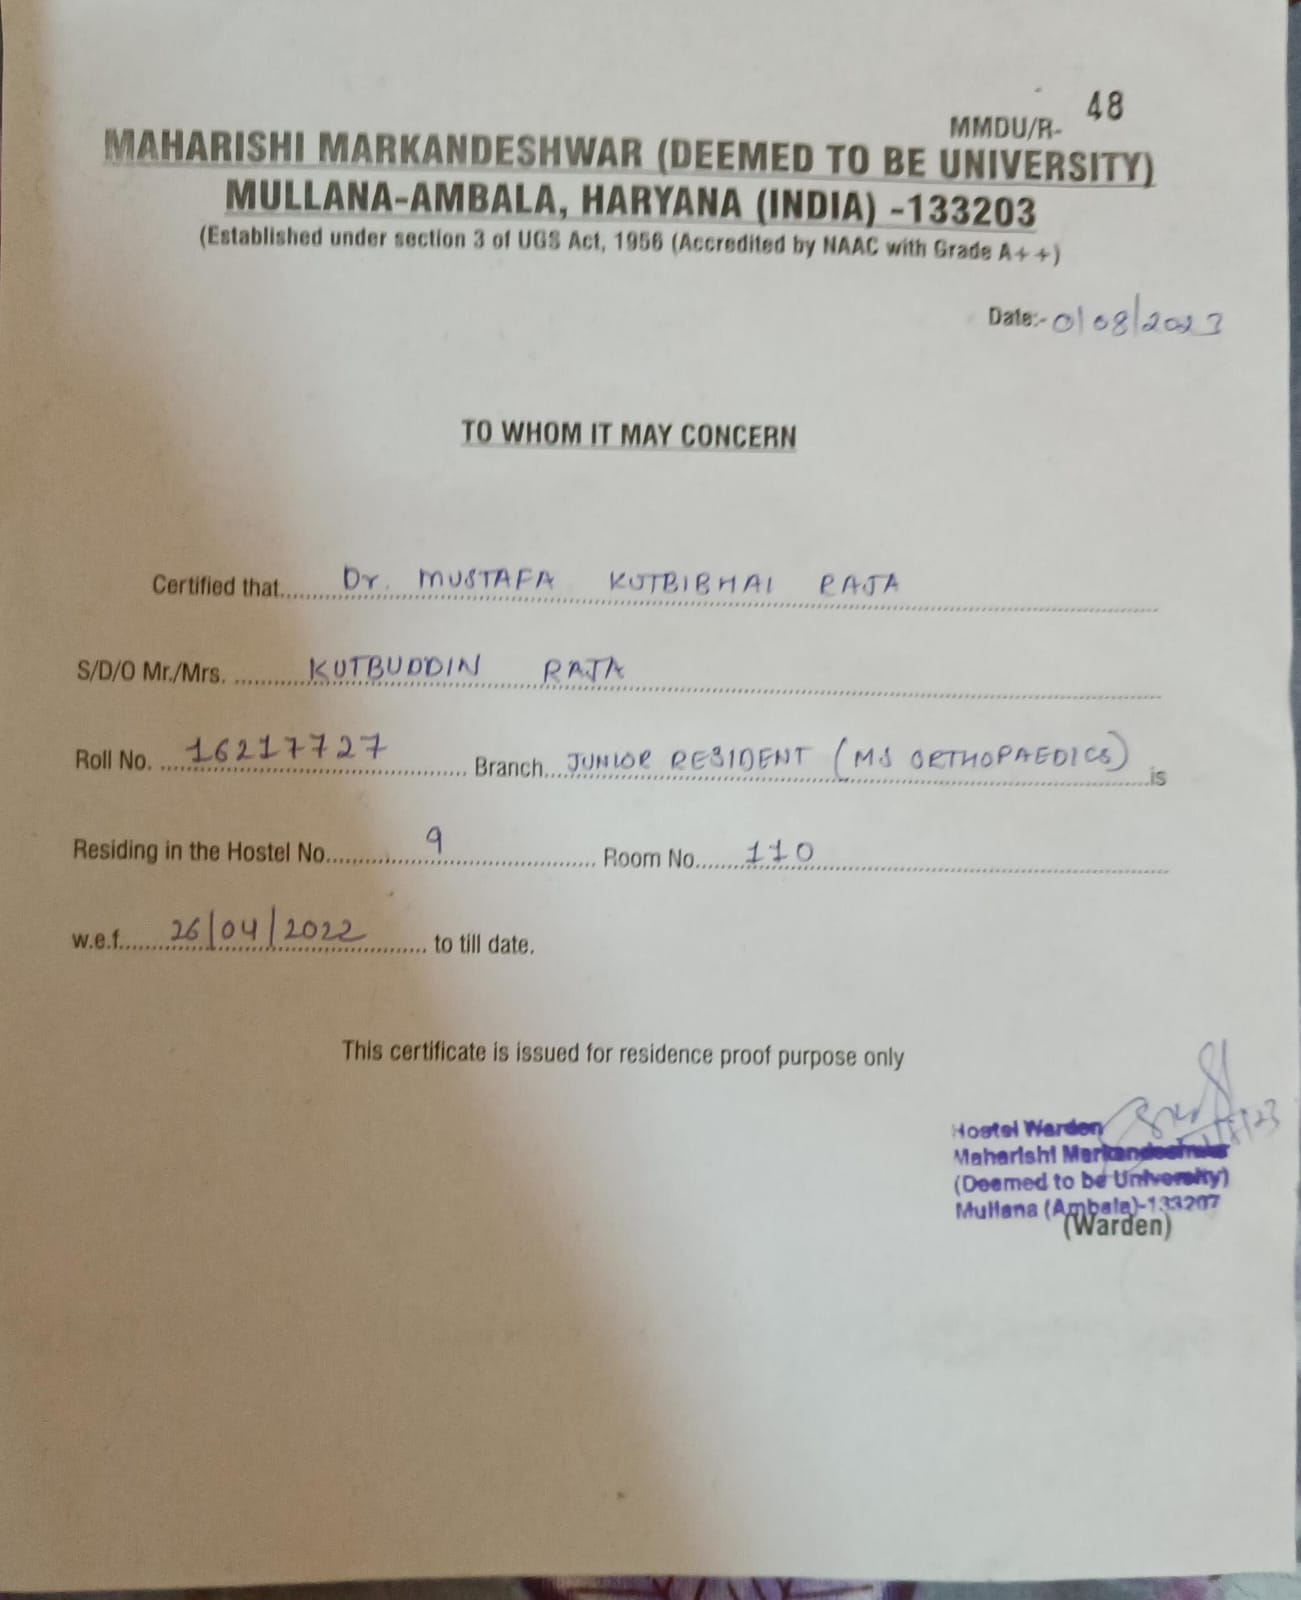 MMDU/R- 48
MAHARISHI MARKANDESHWAR (DEEMED TO BE UNIVERSITY)
MULLANA-AMBALA, HARYANA (INDIA) -133203
(Established under section 3 of UGS Act, 1956 (Accredited by NAAC with Grade A++)
Date:- 01/08/2023
TO WHOM IT MAY CONCERN
Certified that Dr. MUSTAFA KUTBIBHAI RAJA
S/D/O Mr./Mrs. KUTBUDDIN RAJA
Roll No. 16217727 Branch JUNIOR RESIDENT (MS ORTHOPAEDICS) is
Residing in the Hostel No. 9 Room No. 110
w.e.f. 26/04/2022 to till date.
This certificate is issued for residence proof purpose only
Hostel Warden
Maharishi Markandeshwar
(Deemed to be University)
Mullana (Ambala)-133207
(Warden)